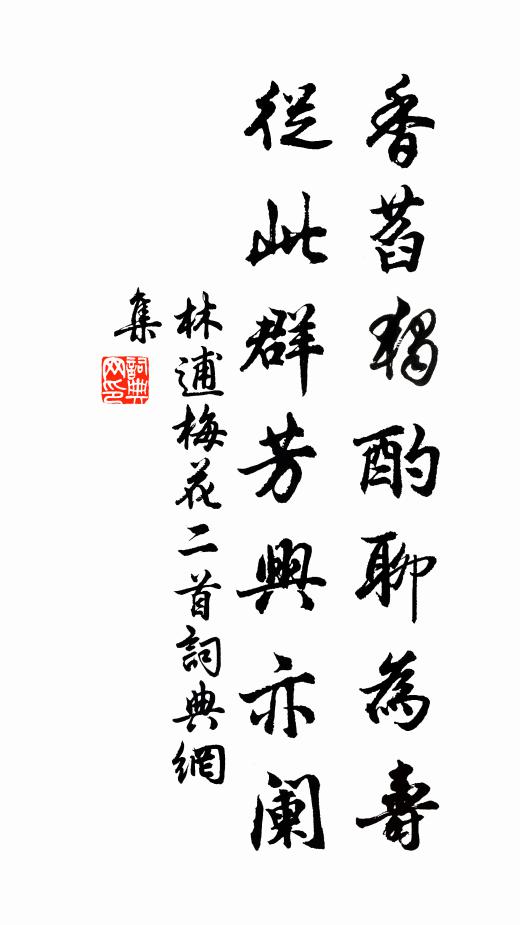 香蒭獨酌聊為壽
從此群芳興亦闌
林逋梅花二首詞典網
集
詞典網印